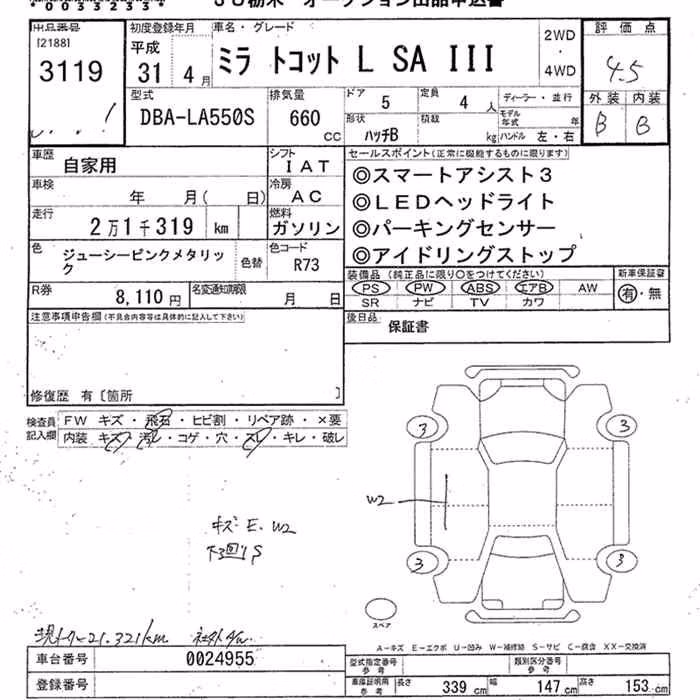 00332334 JU栃木 オークション出品申込書
出品番号 初度登録年月 車名・グレード 2WD 評価点
[2188] 平成
3119 31 4月 ミラ トコット L SA III ・ 4.5
4WD
型式 排気量 ドア 5 定員 4人 ディーラー・並行 外装 内装
DBA-LA550S 660 cc 形状 ハッチB 積載 kg モデル年式 年 B B
ハンドル 左・右
車歴 自家用 シフト IAT セールスポイント(正常に機能するものに限ります)
車検 年 月( 日) 冷房 AC ◎スマートアシスト3
走行 2万1千319 km 燃料 ガソリン ◎LEDヘッドライト
◎パーキングセンサー
色 ジューシーピンクメタリック 色替 色コード R73 ◎アイドリングストップ
R券 8,110円 名変通知期限 月 日 装備品(純正品に限り○をつけてください) 新車保証書
PS PW ABS エアB AW 有・無
SR ナビ TV カワ
注意事項申告欄(不具合内容等は具体的に記入して下さい) 後日品 保証書
修復歴 有〔箇所 〕
検査員記入欄 FW キズ・飛石・ヒビ割・リペア跡・×要
内装 キズ・汚レ・コゲ・穴・スレ・キレ・破レ
3 3
W2
キズ E. W2
下回りS
3 3
スペア
現メーター21.321km 社外
A-キズ E-エクボ U-凹み W-補修跡 S-サビ C-腐食 XX-交換済
車台番号 0024955 型式指定番号 参考 類別区分番号 参考
登録番号 車庫証明用 参考 長さ 339cm 幅 147cm 高さ 153cm